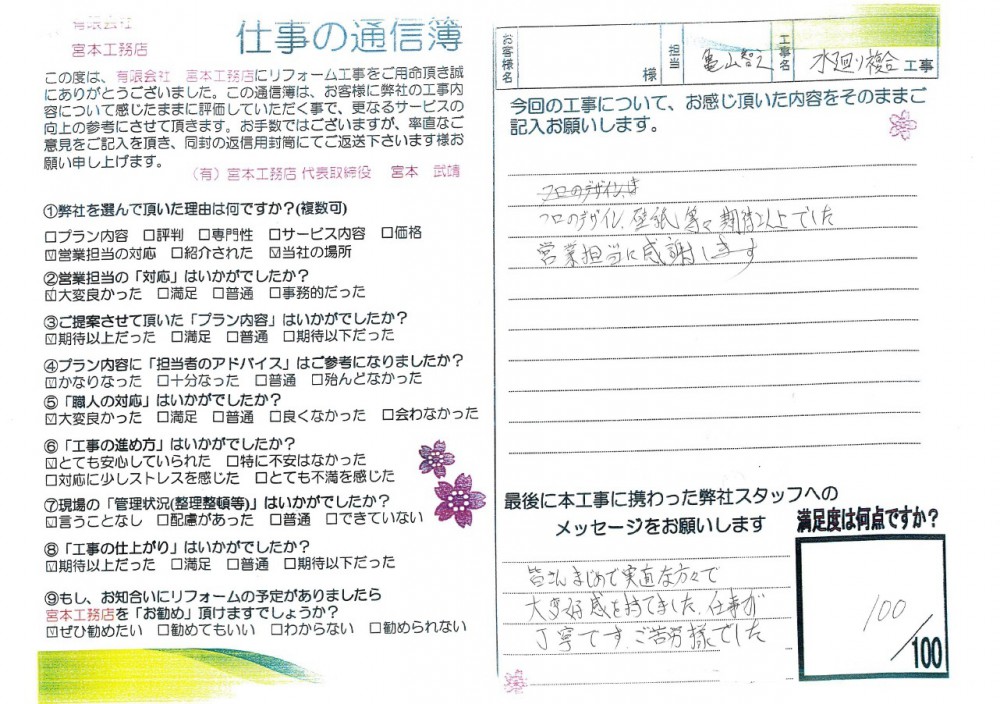 有限会社
宮本工務店
仕事の通信簿
この度は、有限会社 宮本工務店にリフォーム工事をご用命頂き誠
にありがとうございました。この通信簿は、お客様に弊社の工事内
容について感じたままに評価していただく事で、更なるサービスの
向上の参考にさせて頂きます。お手数ではございますが、率直なご
意見をご記入を頂き、同封の返信用封筒にてご返送下さいます様お
願い申し上げます。
(有)宮本工務店 代表取締役 宮本 武靖
①弊社を選んで頂いた理由は何ですか?(複数可)
□プラン内容 □評判 □専門性 □サービス内容 □価格
☑営業担当の対応 □紹介された ☑当社の場所
②営業担当の「対応」はいかがでしたか?
☑大変良かった □満足 □普通 □事務的だった
③ご提案させて頂いた「プラン内容」はいかがでしたか?
☑期待以上だった □満足 □普通 □期待以下だった
④プラン内容に「担当者のアドバイス」はご参考になりましたか?
☑かなりなった □十分なった □普通 □殆んどなかった
⑤「職人の対応」はいかがでしたか?
☑大変良かった □満足 □普通 □良くなかった □会わなかった
⑥「工事の進め方」はいかがでしたか?
☑とても安心していられた □特に不安はなかった
□対応に少しストレスを感じた □とても不満を感じた
⑦現場の「管理状況(整理整頓等)」はいかがでしたか?
☑言うことなし □配慮があった □普通 □できていない
⑧「工事の仕上がり」はいかがでしたか?
☑期待以上だった □満足 □普通 □期待以下だった
⑨もし、お知合いにリフォームの予定がありましたら
宮本工務店を「お勧め」頂けますでしょうか?
☑ぜひ勧めたい □勧めてもいい □わからない □勧められない
お客様名 様 担当 亀山智之 工事名 水廻り複合工事
今回の工事について、お感じ頂いた内容をそのままご
記入お願いします。
フロのデザインは
フロのデザイン、壁紙等々期待以上でした
営業担当に感謝します
最後に本工事に携わった弊社スタッフへの
メッセージをお願いします
皆さんまじめで実直な方々で
大変好感を持てました。仕事が
丁寧です。ご苦労様でした
満足度は何点ですか?
100/100